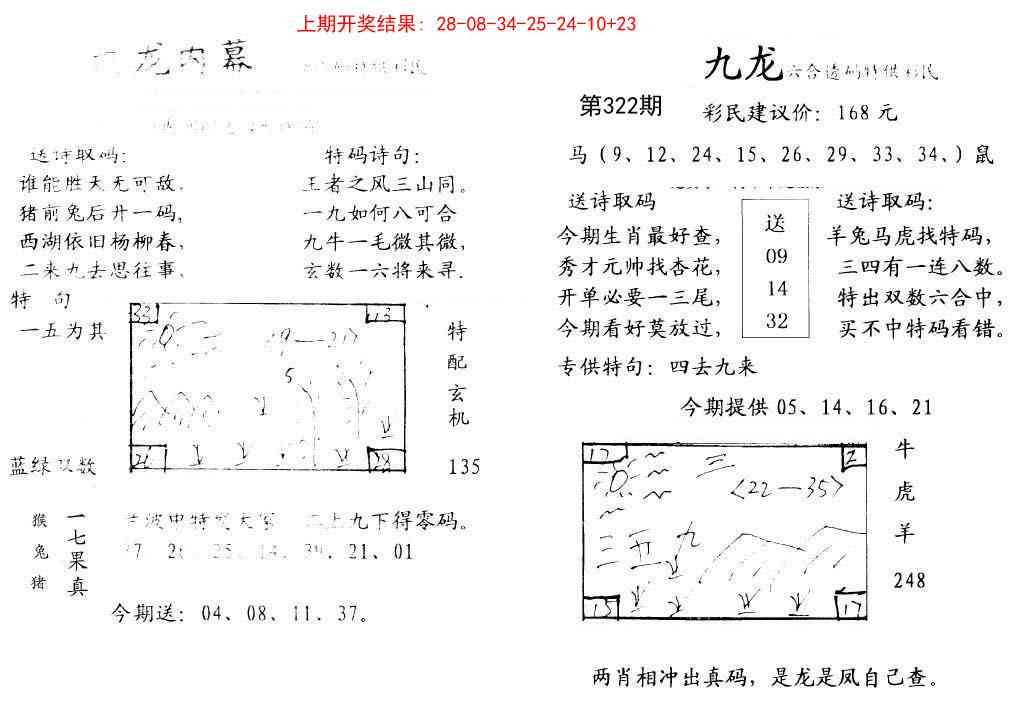 上期开奖结果：28-08-34-25-24-10+23
九龙内幕
送诗取码：
谁能胜天无可敌．
猪前兔后升一码，
西湖依旧杨柳春，
二来九去思往事．
特码诗句：
王者之风三山同。
一九如何八可合
九牛一毛微其微，
玄数一六将来寻．
特 句
一五为其
蓝绿双数
33
13
5
21
28
特配玄机
135
猴兔猪
一七果真
波中特 大 二上九下得零码。
25、14、39、21、01
今期送：04、08、11．37。
九龙六合透码特供彩民
第322期
彩民建议价：168 元
马（9、12、24、15、26、29、33、34、）鼠
送诗取码
今期生肖最好查，
秀才元帅找杏花，
开单必要一三尾，
今期看好莫放过，
送
09
14
32
送诗取码：
羊兔马虎找特码，
三四有一连八数。
特出双数六合中，
买不中特码看错。
专供特句：四去九来
今期提供 05、14、16、21
17
2
三
<22—35>
三五九
15
17
牛
虎
羊
248
两肖相冲出真码，是龙是凤自己查。